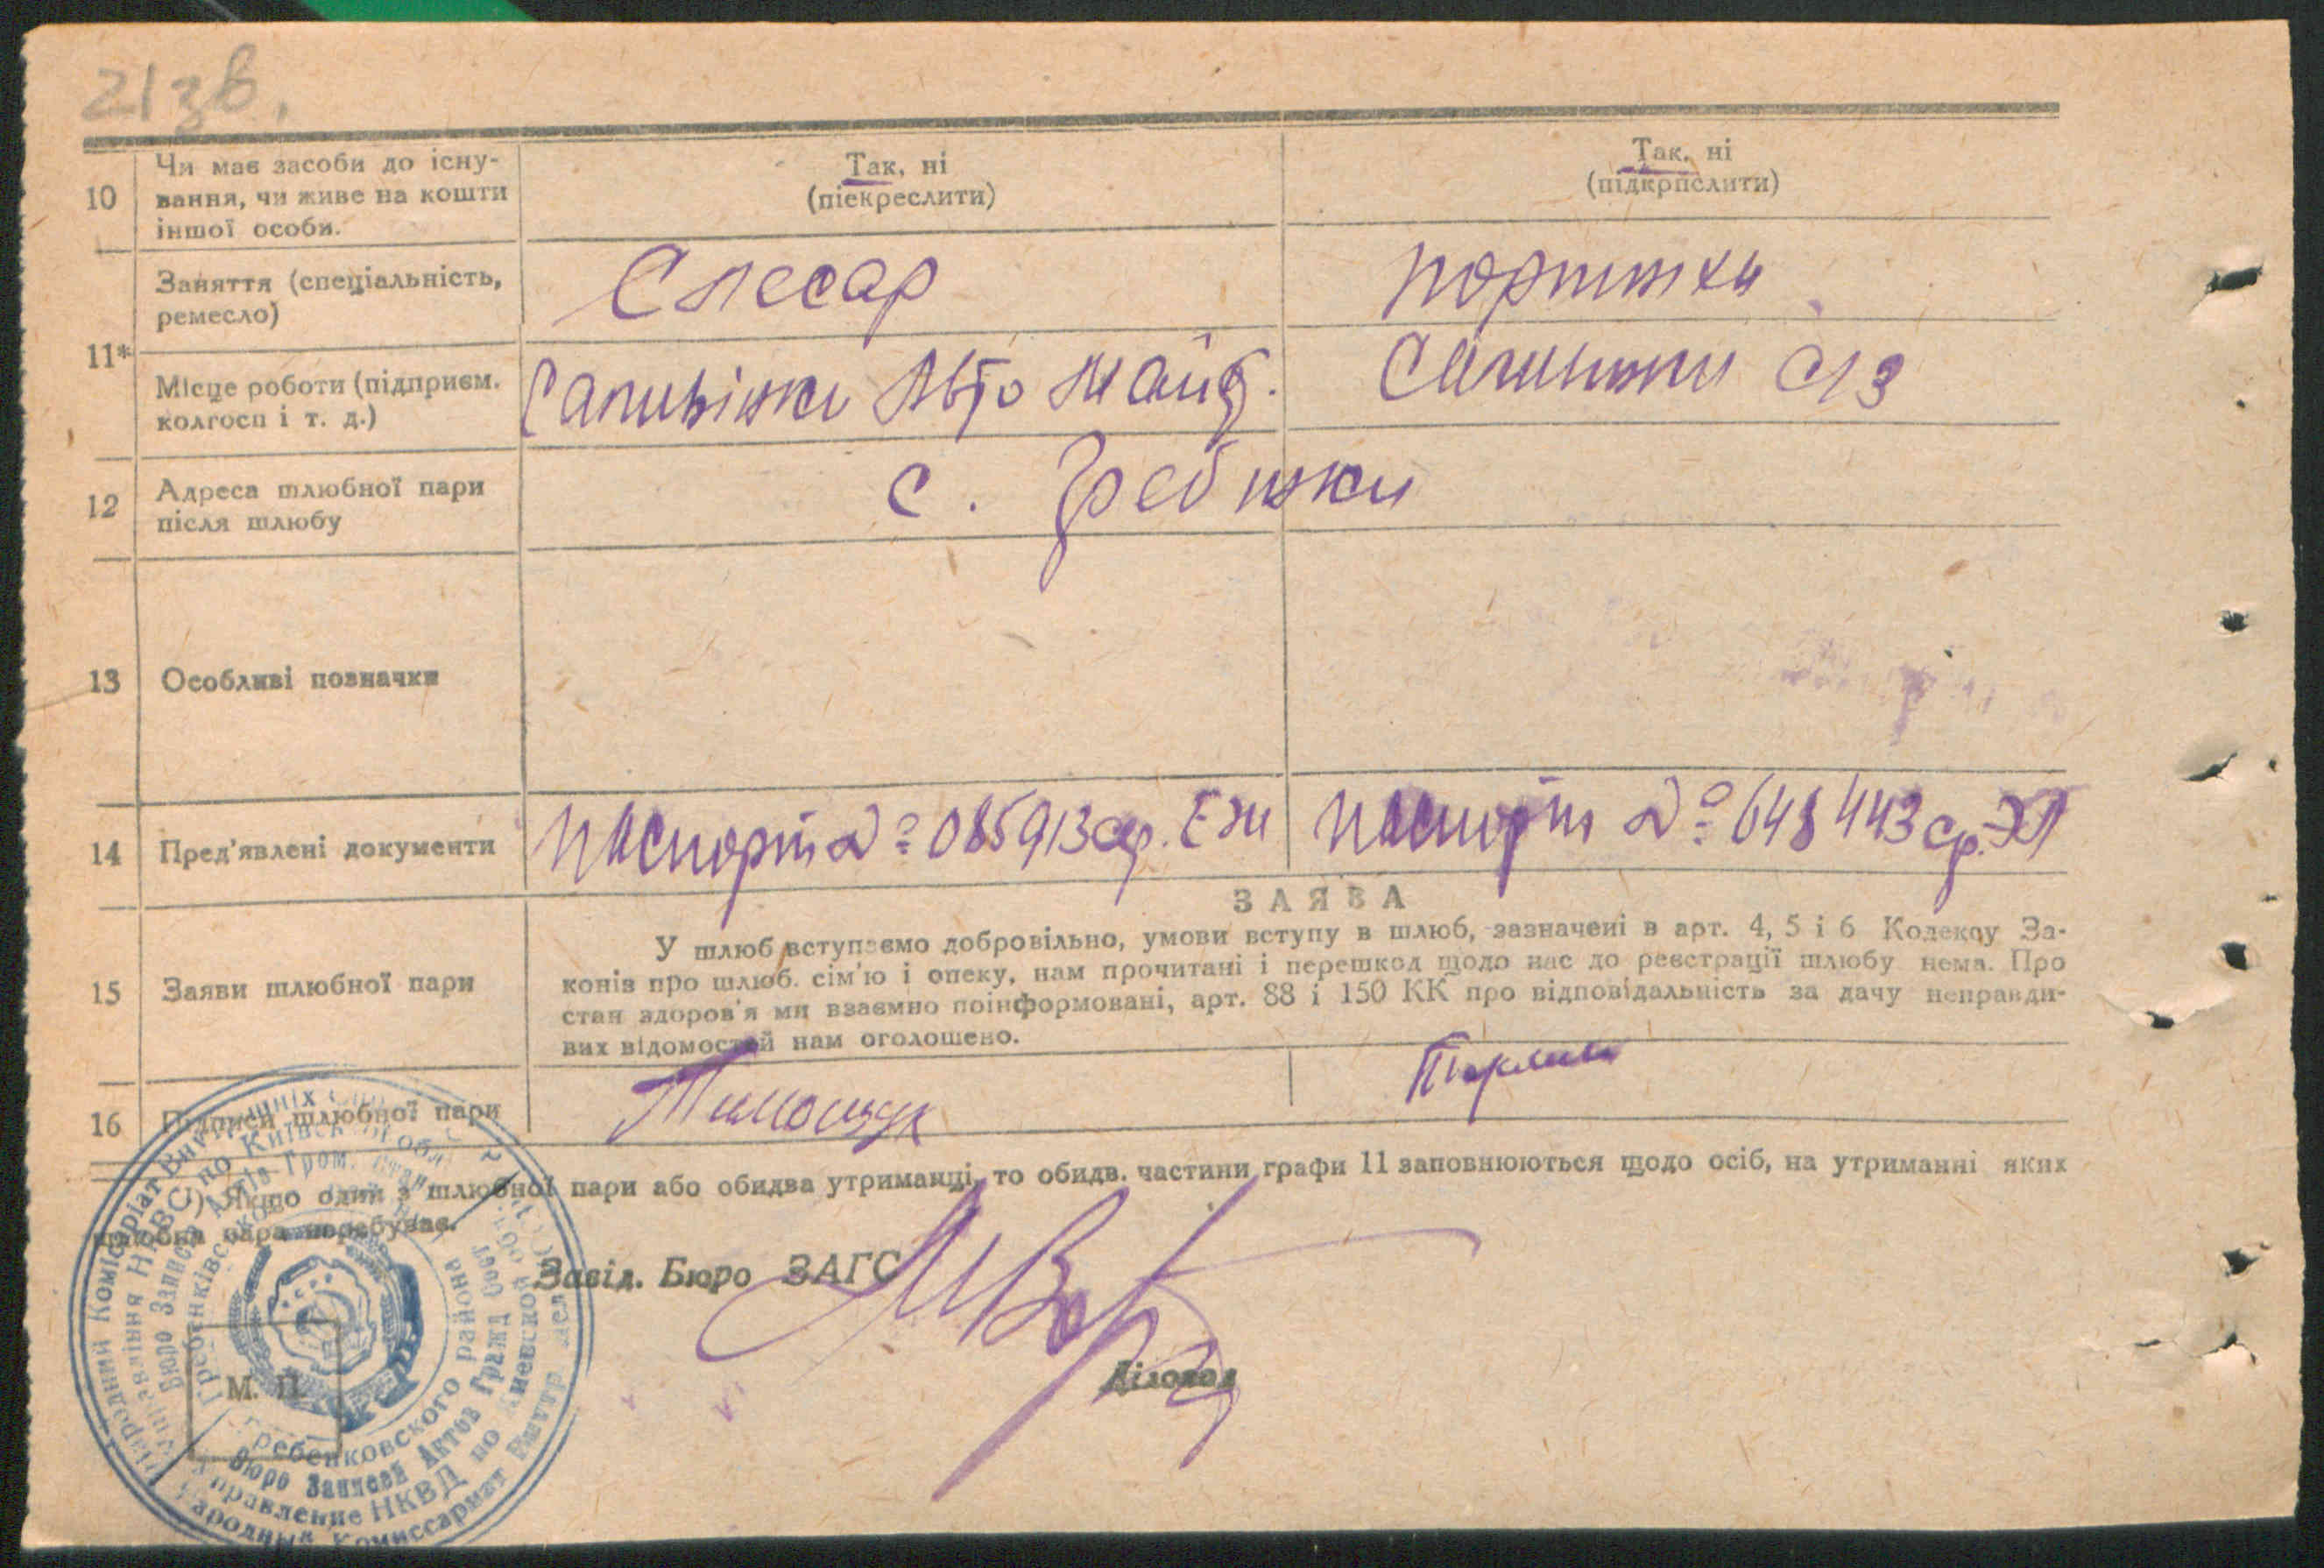 21зв.
10
Чи має засоби до існу-
вання, чи живе на кошти
іншої особи.
Так, ні
(піекреслити)
Так, ні
(підкрпслити)
11*
Заняття (спеціальність,
ремесло)
Слесар
Місце роботи (підприєм.
колгосп і т. д.)
с/з
12
Адреса шлюбної пари
після шлюбу
с. Гребінки
13
Особливі позначки
14
Пред'явлені документи
паспорт № 085913 ср.
паспорт № 648443 ср.
ЗАЯВА
15
Заяви шлюбної пари
У шлюб вступаємо добровільно, умови вступу в шлюб, зазначені в арт. 4, 5 і 6 Кодексу За-
конів про шлюб. сім'ю і опеку, нам прочитані і перешкод щодо нас до реєстрації шлюбу нема. Про
стан здоров'я ми взаємно поінформовані, арт. 88 і 150 КК про відповідальність за дачу неправди-
вих відомостей нам оголошено.
16
Підписи шлюбної пари
Тимощук
Якщо один з шлюбної пари або обидва утриманці, то обидв. частини графи 11 заповнюються щодо осіб, на утриманні яких
шлюбна пара перебуває.
Завід. Бюро ЗАГС
Діловод
М. П.
Народний Комісаріат Внутрішніх
Управління НКВС по Київській обл.
Бюро Записів Актів Гром. Стану
Гребенківського
Гребенковского района
Бюро Записей Актов Гражд Сост
Управление НКВД по Киевской обл.
Народный Комиссариат Внутр. Дел